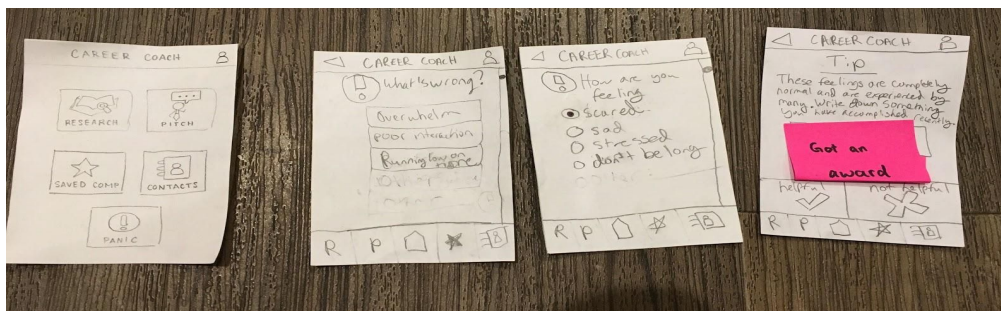 CAREER COACH
RESEARCH
PITCH
SAVED COMP
CONTACTS
PANIC
CAREER COACH
What's wrong?
Overwhelm
poor interaction
Running low on
R P
CAREER COACH
How are you
feeling
scared
sad
stressed
don't belong
R P
CAREER COACH
Tip
These feelings are completely
normal and are experienced by
many. Write down something
you have accomplished recently.
Got an
award
helpful
not helpful
R P